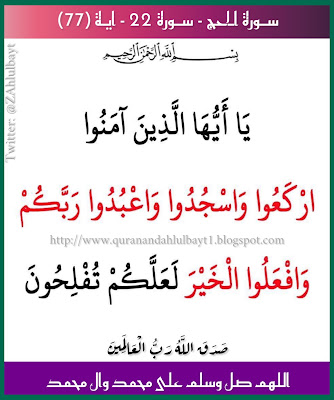 سورة الحج - سورة 22 - اية (77)
بسم الله الرحمن الرحيم
يَا أَيُّهَا الَّذِينَ آمَنُوا
ارْكَعُوا وَاسْجُدُوا وَاعْبُدُوا رَبَّكُمْ
http://www.quranandahlulbayt1.blogspot.com
وَافْعَلُوا الْخَيْرَ لَعَلَّكُمْ تُفْلِحُونَ
صَدَقَ اللَّهُ رَبُّ الْعَالَمِينَ
اللهم صل وسلم على محمد وال محمد
Twitter: @ZAhlulbayt